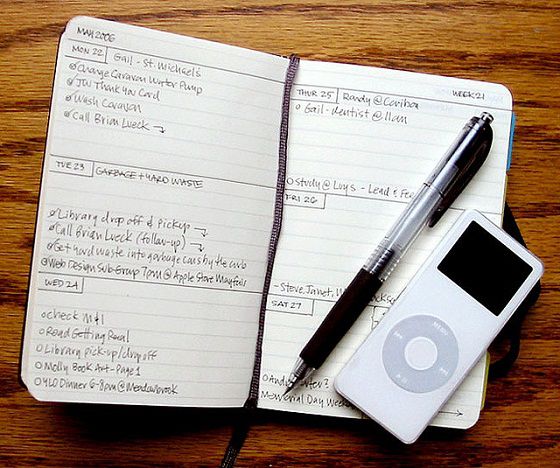 MAY 2006
MON 22
Gail - St. Michael's
Change Caravan Water Pump
JW Thank You Card
Wash Caravan
Call Brian Lueck
TUE 23
GARBAGE + YARD WASTE
Library drop off & pickup
Call Brian Lueck (follow-up)
Get yard waste into garbage cans by the curb
Web Design Sub-Group 7pm @ Apple Store Mayfair
WED 24
check M&I
Read Getting Real
Library pick-up/drop off
Molly Book Art - Page 1
YLO Dinner 6-8pm @ Meadowbrook
THUR 25
Randy @ Caribou
WEEK 21
Gail - dentist @ 11am
Study @ Luy's - Lead &
FRI 26
- Steve, Janet,
SAT 27
Memorial Day
MENU